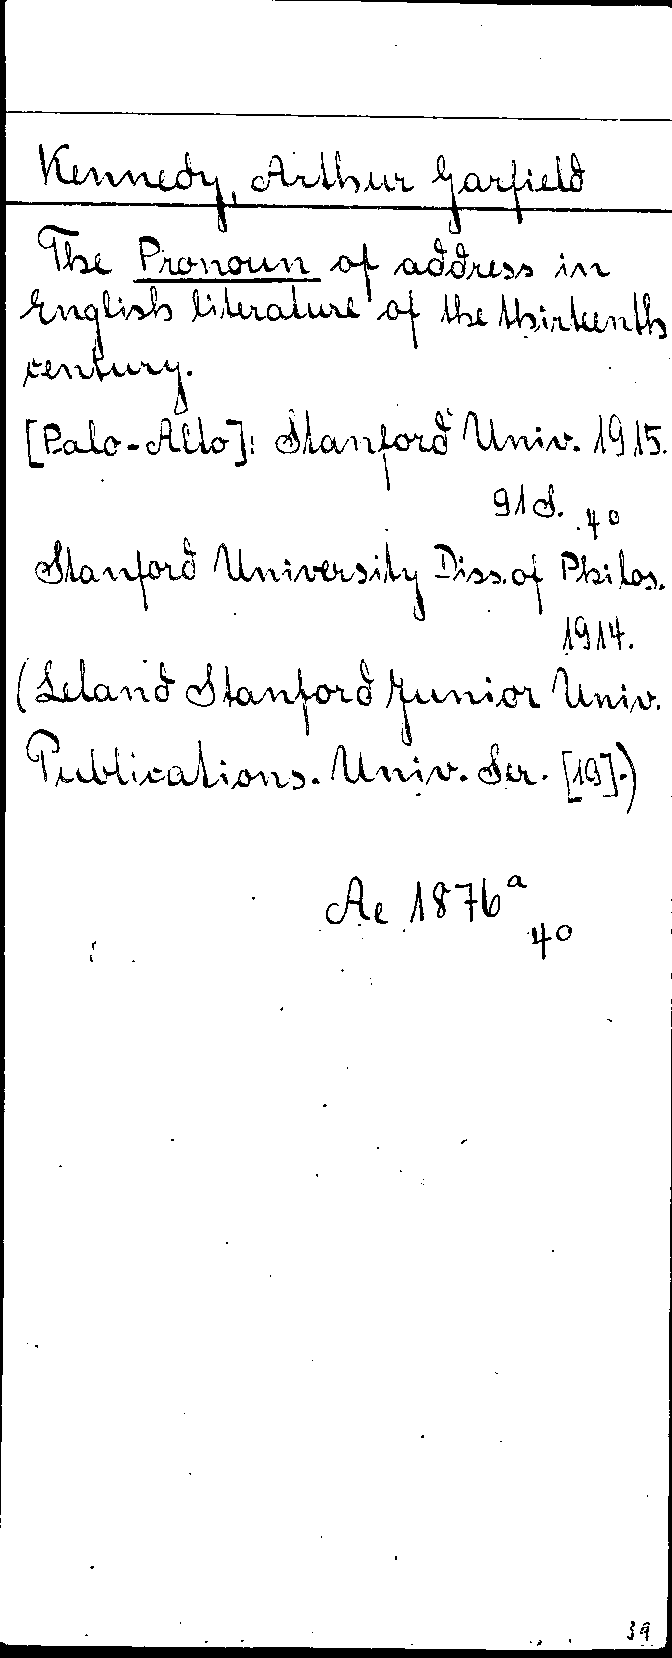 Kennedy, Arthur Garfield
The Pronoun of address in
English literature of the thirteenth
century.
[Palo-Alto]: Stanford Univ. 1915.
91 S. 4°
Stanford University Diss. of Philos.
1914.
(Leland Stanford Junior Univ.
Publications. Univ. Ser. [19].)
Ae 1876ᵃ
4°
39